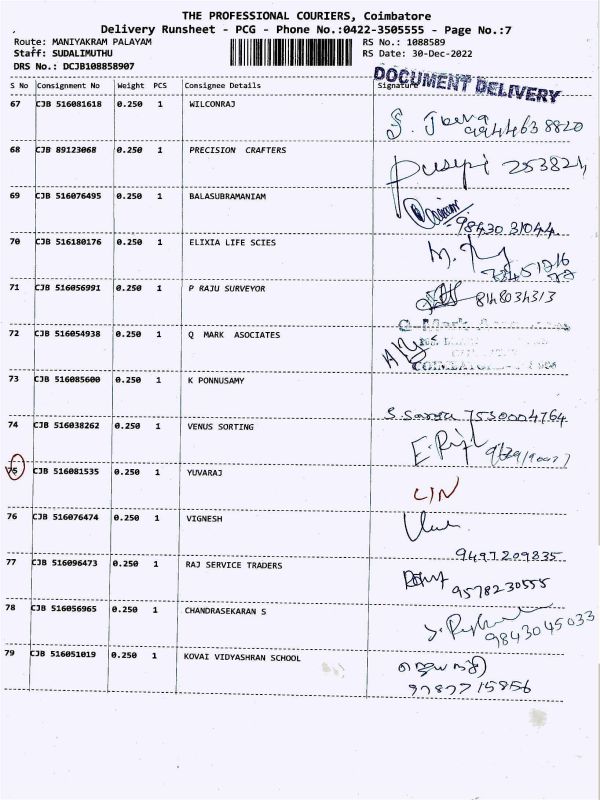 THE PROFESSIONAL COURIERS, Coimbatore
Delivery Runsheet - PCG - Phone No.:0422-3505555 - Page No.:7
Route: MANIYAKRAM PALAYAM RS No.: 1088589
Staff: SUDALIMUTHU RS Date: 30-Dec-2022
DRS No.: DCJB108858907
DOCUMENT DELIVERY
S No Consignment No Weight PCS Consignee Details Signature
67 CJB 516081618 0.250 1 WILCONRAJ
9944638820
68 CJB 89123068 0.250 1 PRECISION CRAFTERS
69 CJB 516076495 0.250 1 BALASUBRAMANIAM
98430 31044
70 CJB 516180176 0.250 1 ELIXIA LIFE SCIES
71 CJB 516056991 0.250 1 P RAJU SURVEYOR
8148034313
72 CJB 516054938 0.250 1 Q MARK ASOCIATES
73 CJB 516085600 0.250 1 K PONNUSAMY
7530004764
74 CJB 516038262 0.250 1 VENUS SORTING
75 CJB 516081535 0.250 1 YUVARAJ
LIN
76 CJB 516076474 0.250 1 VIGNESH
9497209835
77 CJB 516096473 0.250 1 RAJ SERVICE TRADERS
9578230555
78 CJB 516056965 0.250 1 CHANDRASEKARAN S
9843045033
79 CJB 516051019 0.250 1 KOVAI VIDYASHRAN SCHOOL
9787715856